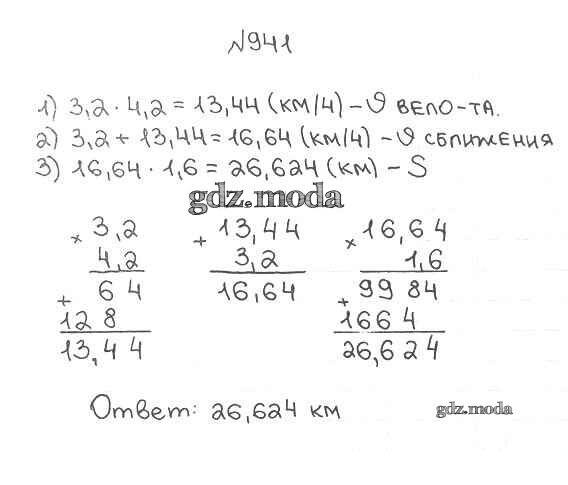 №941
1) 3,2 · 4,2 = 13,44 (км/ч) – V вело-та.
2) 3,2 + 13,44 = 16,64 (км/ч) – V сближения
3) 16,64 · 1,6 = 26,624 (км) – S
gdz.moda
× 3,2
4,2
+ 64
128
13,44
+ 13,44
3,2
16,64
× 16,64
1,6
+ 9984
1664
26,624
Ответ: 26,624 км
gdz.moda